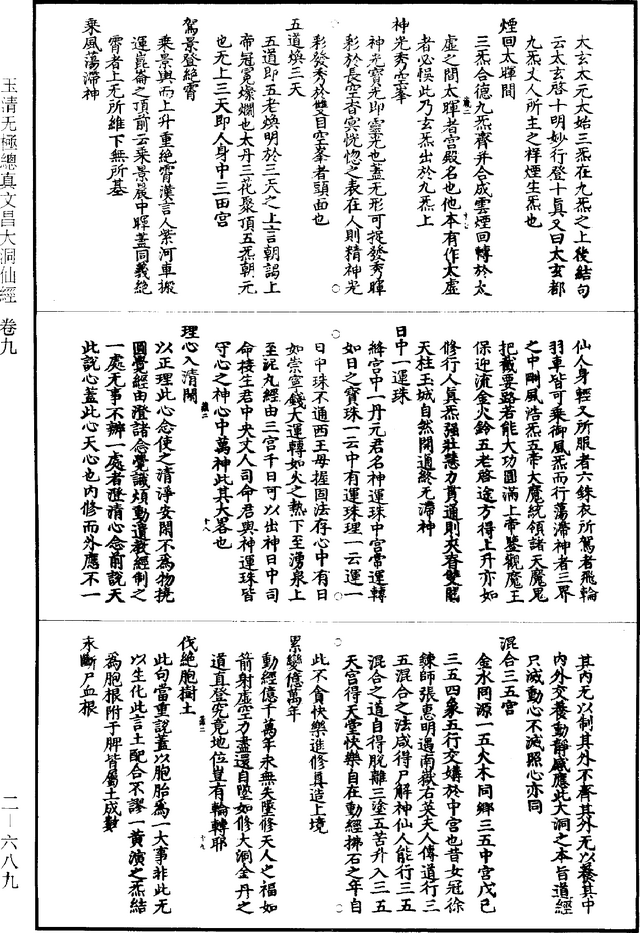 大玄太元大始三炁在九炁之上後結句
云太玄啓十明妙行登十眞又曰太玄都
九炁丈人所主之祥煙生炁也
煙回太暉間
三炁合德九炁齊并合成雲煙回轉於太
虛之間太暉者宮殿名也他本有作太虛
者必悞此乃玄炁出於九炁上
神光秀空峯
神光寶光即靈光也蓋无形可捉發秀暉
彩於長空杳冥恍惚之表在人則精神光
彩發秀於雙目空峯者頭面也
五道煥三天
五道即五老煥明於三天之上言朝謁上
帝冠冕燦爛也太丹三花聚頂五炁朝元
也无上三天即人身中三田宮
駕景登絶霄
乘景輿而上升重絶霄漢言人紫河車搬
運崑崙之頂前云乘景晨中暉蓋同義絶
霄者上无所維下無所基
乘風蕩滯神
仙人身輕又所服者六銖衣所駕者飛輪
羽車皆可乘御風炁而行蕩滯神者三界
之中剛風浩炁五帝大魔統領諸天魔鬼
把截要路若能大功圓滿上帝鑒觀魔王
保迎流金火鈴五老啓途方得上升亦如
修行人真炁强壯慧力貫通則夾脊雙關
天柱玉城自然開通終无滯神
日中一運珠
絳宮中一丹元君名神運珠中宮常運轉
如日之寶珠一云中有運珠理一云運一
日中珠不通西王母握固法存心中有日
如崇寧錢大運轉如火之熱下至湧泉上
至泥丸經由三宮千日可以出神日中司
命接生君中央丈人司命君與神運珠皆
守心之神心中萬神此其大畧也
理心入清閑
以正理此心念使之清淨安閑不爲物撓
圓覺經由澄諸念覺識煩動遺教經制之
一處无事不辦一處者澄清心念前說天
此說心蓋此心天心也内修而外應不一
其内无以制其外不齊其外无以養其中
内外交養動靜感應此大洞之本旨道經
只滅動心不滅照心亦同
混合三五宮
金水同源一五火木同鄉三五中宮戊己
三五四象五行交媾於中宮也昔女冠徐
鍊師張惠明遇南嶽右英夫人傳道行三
五混合之法咸得尸解神仙人能行三五
混合之道自得脫離三塗五苦升入三五
天宮得天堂快樂自在動經拂石之年自
此不會快樂進修眞造上境
累變億萬年
動經億千萬年永無失墜修天人之福如
箭射虛空力盡還自墜如修大洞金丹之
道直登究竟地位豈有輪轉耶
伐絶胞樹土
此句當重說蓋以胞胎爲一大事非此无
以生化此言土配合不謬一黃演之炁結
爲胞根附于脾皆屬土成難
永斷尸血根
玉清无極總真文昌大洞仙經 卷九
二—六八九